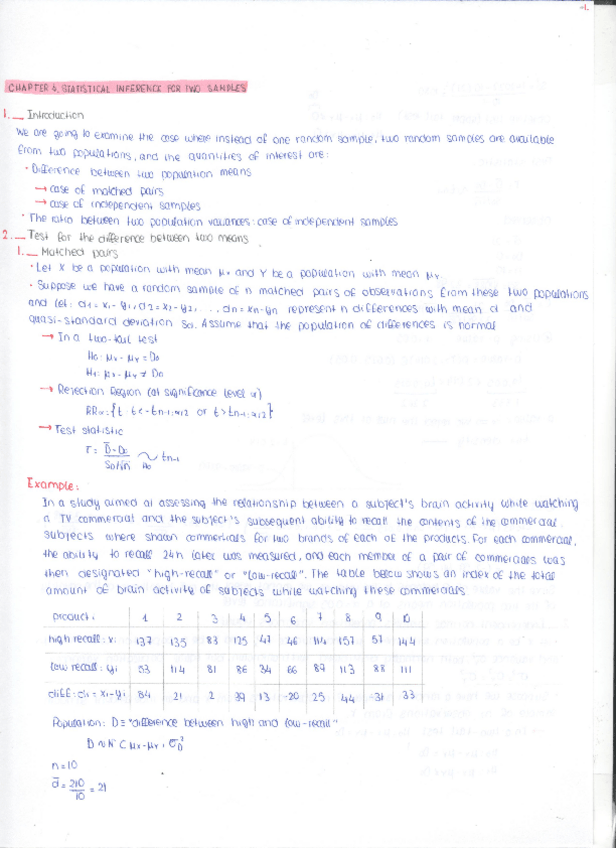 CHAPTER 6. STATISTICAL INFERENCE FOR TWO SAMPLES
1._ Introduction
We are going to examine the case where instead of one random sample, two random samples are available
from two populations, and the quantities of interest are:
· Difference between two population means
→ case of matched pairs
→ case of independent samples
· The ratio between two population variances: case of independent samples
2._ Test for the difference between two means
1._ Matched pairs
· Let X be a population with mean μx and Y be a population with mean μy.
· Suppose we have a random sample of n matched pairs of observations from these two populations
and let: d1 = x1-y1, d2 = x2-y2, ..., dn = xn-yn represent n differences with mean d and
quasi-standard deviation SD. Assume that the population of differences is normal
→ In a two-tail test
H0: μx - μy = D0
H1: μx - μy ≠ D0
→ Rejection Region (at significance level α)
RRα = {t: t < -tn-1;α/2 or t > tn-1;α/2}
→ Test statistic
T = D̄ - D0 / SD/√n ~H0 tn-1
Example:
In a study aimed at assessing the relationship between a subject's brain activity while watching
a TV commercial and the subject's subsequent ability to recall the contents of the commercial,
subjects where shown commercials for two brands of each of the products. For each commercial,
the ability to recall 24h later was measured, and each member of a pair of commercials was
then designated "high-recall" or "low-recall". The table below shows an index of the total
amount of brain activity of subjects while watching these commercials
product: 1 2 3 4 5 6 7 8 9 10
high recall: xi 137 135 83 125 47 46 114 157 57 144
low recall: yi 53 114 81 86 34 66 89 113 88 111
diff: di = xi-yi 84 21 2 39 13 -20 25 44 -31 33
Population: D = "difference between high and low-recall"
D ~ N (μx-μy, σD²
n=10
d̄ = 210/10 = 21